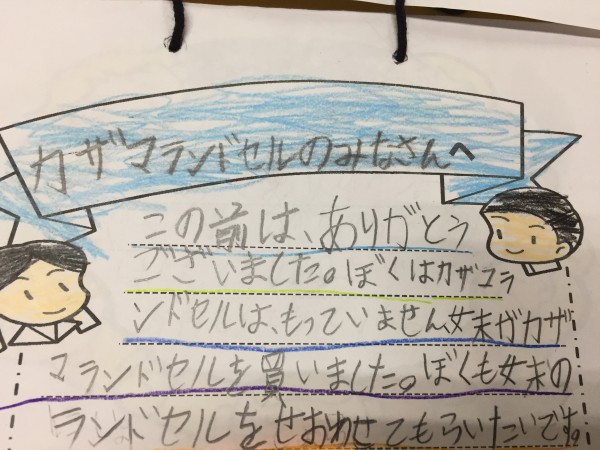 カザマランドセルのみなさんへ
この前は、ありがとう
ございました。ぼくはカザマラ
ンドセルは、もっていません、妹がカザ
マランドセルを買いました。ぼくも妹の
ランドセルをせおわせてもらいたいです。